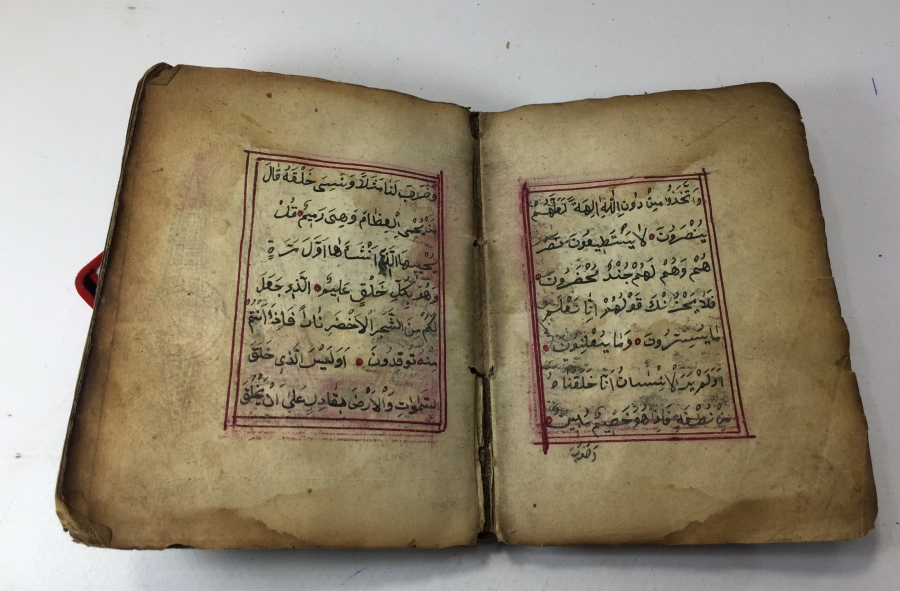 وَاتَّخَذُوا مِنْ دُونِ اللّٰهِ اٰلِهَةً لَعَلَّهُمْ
يُنْصَرُونَ لَا يَسْتَطِيعُونَ نَصْرَ
هُمْ وَهُمْ لَهُمْ جُنْدٌ مُحْضَرُونَ
فَلَا يَحْزُنْكَ قَوْلُهُمْ اِنَّا نَعْلَمُ
مَا يُسِرُّونَ وَمَا يُعْلِنُونَ
اَوَلَمْ يَرَ الْاِنْسَانُ اَنَّا خَلَقْنَاهُ
مِنْ نُطْفَةٍ فَاِذَا هُوَ خَصِيمٌ مُبِينٌ
وَضَرَبَ
وَضَرَبَ لَنَا مَثَلًا وَنَسِيَ خَلْقَهُ قَالَ
مَنْ يُحْيِي الْعِظَامَ وَهِيَ رَمِيمٌ قُلْ
يُحْيِيهَا الَّذِي اَنْشَاَهَا اَوَّلَ مَرَّةٍ
وَهُوَ بِكُلِّ خَلْقٍ عَلِيمٌ الَّذِي جَعَلَ
لَكُمْ مِنَ الشَّجَرِ الْاَخْضَرِ نَارًا فَاِذَا اَنْتُمْ
مِنْهُ تُوقِدُونَ اَوَلَيْسَ الَّذِي خَلَقَ
السَّمٰوَاتِ وَالْاَرْضَ بِقَادِرٍ عَلٰى اَنْ يَخْلُقَ